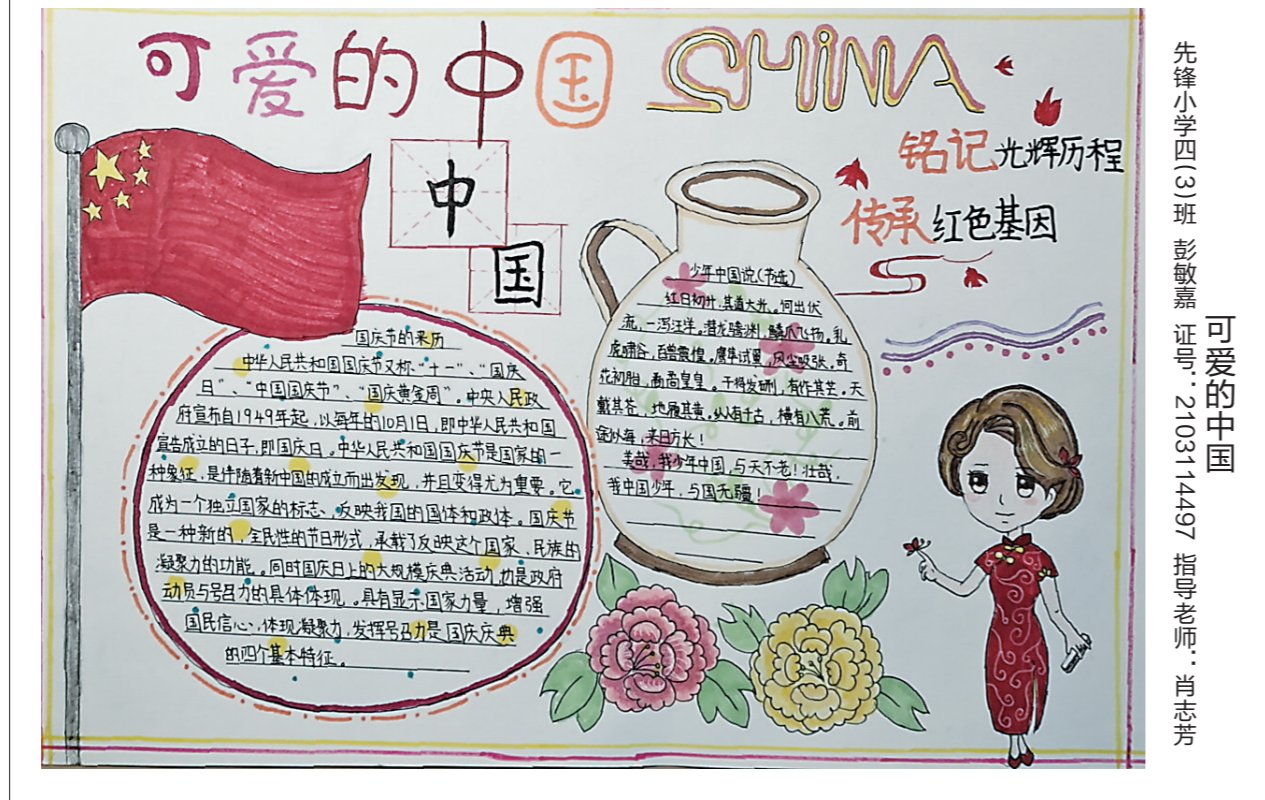 可爱的中国 CHINA
中
国
铭记光辉历程
传承红色基因
国庆节的来历
中华人民共和国国庆节又称“十一”、“国庆
日”、“中国国庆节”、“国庆黄金周”。中央人民政
府宣布自1949年起,以每年的10月1日,即中华人民共和国
宣告成立的日子,即国庆日。中华人民共和国国庆节是国家的一
种象征,是伴随着新中国的成立而出发现,并且变得尤为重要。它
成为一个独立国家的标志,反映我国的国体和政体。国庆节
是一种新的,全民性的节日形式,承载了反映这个国家、民族的
凝聚力的功能。同时国庆日上的大规模庆典活动,也是政府
动员与号召力的具体体现。具有显示国家力量,增强
国民信心,体现凝聚力,发挥号召力是国庆庆典
的四个基本特征。
少年中国说(节选)
红日初升,其道大光。何出伏
流,一泻汪洋。潜龙腾渊,鳞爪飞扬。乳
虎啸谷,百兽震惶。鹰隼试翼,风尘吸张。奇
花初胎,矞矞皇皇。干将发硎,有作其芒。天
戴其苍,地履其黄。纵有千古,横有八荒。前
途似海,来日方长!
美哉,我少年中国,与天不老!壮哉,
我中国少年,与国无疆!
可爱的中国
先锋小学四(3)班 彭敏嘉 证号:2103114497 指导老师:肖志芳